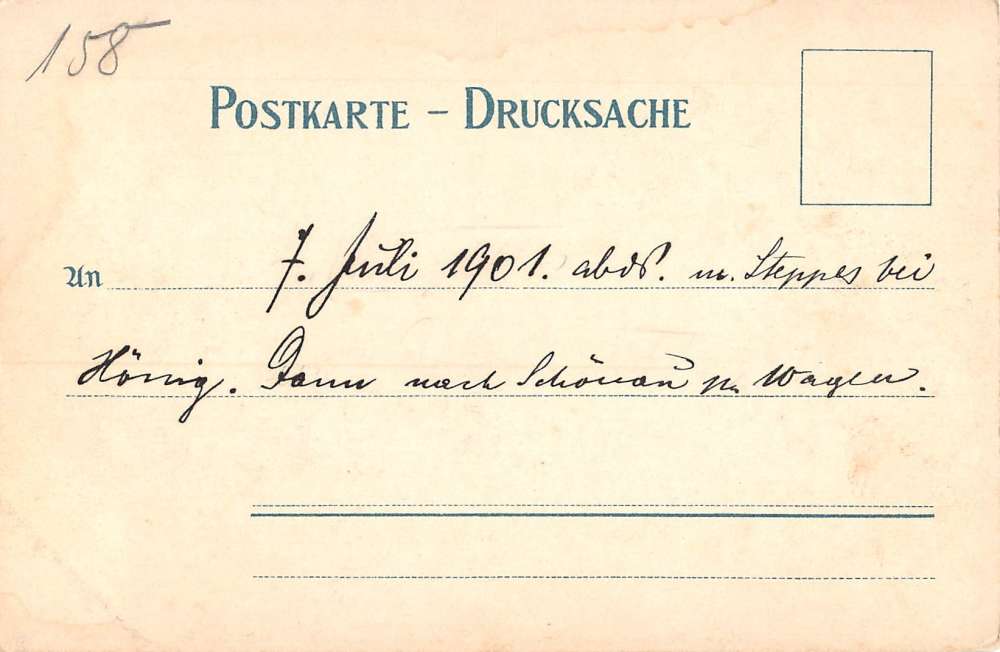 158
POSTKARTE – DRUCKSACHE
An 7. Juli 1901. abds. m. Steppes bei
Hönig. Dann nach Schönau p. Wagen.